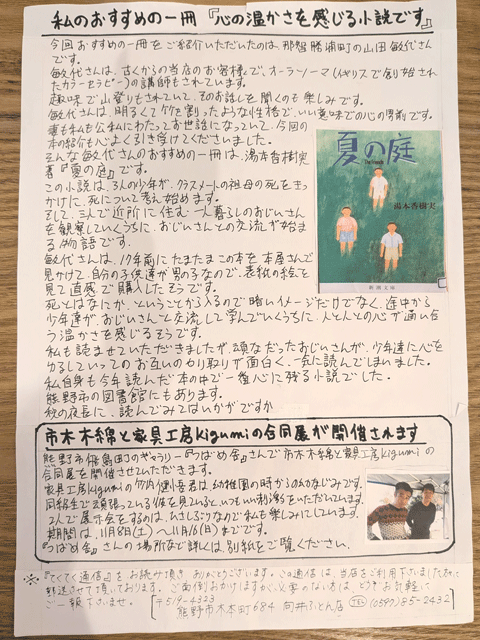 私のおすすめの一冊『心の温かさを感じる小説です』
今回おすすめの一冊をご紹介いただいたのは、那智勝浦町の山田敏代さん
です。
敏代さんは、古くからの当店のお客様で、オーラソーマ(イギリスで創始され
たカラーセラピー)の講師もされています。
趣味で山登りもされていて、そのお話しを聞くのも楽しみです。
敏代さんは、明るくて竹を割ったような性格で、いい意味での心の男前です。
妻も私も公私にわたってお世話になっていて、今回の
本の紹介も心よく引き受けてくださいました。
そんな敏代さんのおすすめの一冊は、湯本香樹実
著『夏の庭』です。
この小説は、3人の少年が、クラスメートの祖母の死をきっ
かけに、死について考え始めます。
そして、三人で近所に住む一人暮らしのおじいさん
を観察していくうちに、おじいさんとの交流が始ま
る物語です。
敏代さんは、17年前にたまたまこの本を本屋さんで
見かけて、自分の子供達が男の子なので、表紙の絵を
見て直感で購入したそうです。
死とはなにか、ということから入るので暗いイメージだけでなく、途中から
少年達が、おじいさんと交流して学んでいくうちに、人と人との心が通い合
う温かさを感じるそうです。
私も読ませていただきましたが、頑なだったおじいさんが、少年達に心を
力るしていってのお互いのやり取りが面白く、一気に読んでしまいました。
私自身も今年読んだ本の中で一番心に残る小説でした。
熊野市の図書館にもあります。
秋の夜長に、読んでみてはいかがですか
夏の庭
The Friends
湯本香樹実
新潮文庫
市木木綿と家具工房Kigumiの合同展が開催されます
熊野市飛鳥町のギャラリー『つばめ舎』さんで市木木綿と家具工房Kigumiの
合同展を開催させていただきます。
家具工房Kigumiの竹内健吾君は幼稚園の時からのおさななじみです。
同級生で頑張っている彼を見ていると、いつもいい刺激をいただいています。
2人で展示会をするのは、ひさしぶりなので私も楽しみにしています。
期間は、11月8日(土)〜11月16日(日)までです。
『つばめ舎』さんの場所など詳しくは、別紙をご覧ください。
※『てくてく通信』をお読み頂きありがとうございます。この通信は、当店をご利用下さいました方に
郵送させて頂いております。ご面倒おかけしますが、必要のない方は、どうぞお気軽に
ご一報下さいませ。
〒519-4323
熊野市木本町684 向井ふとん店 TEL(0597)85-2432